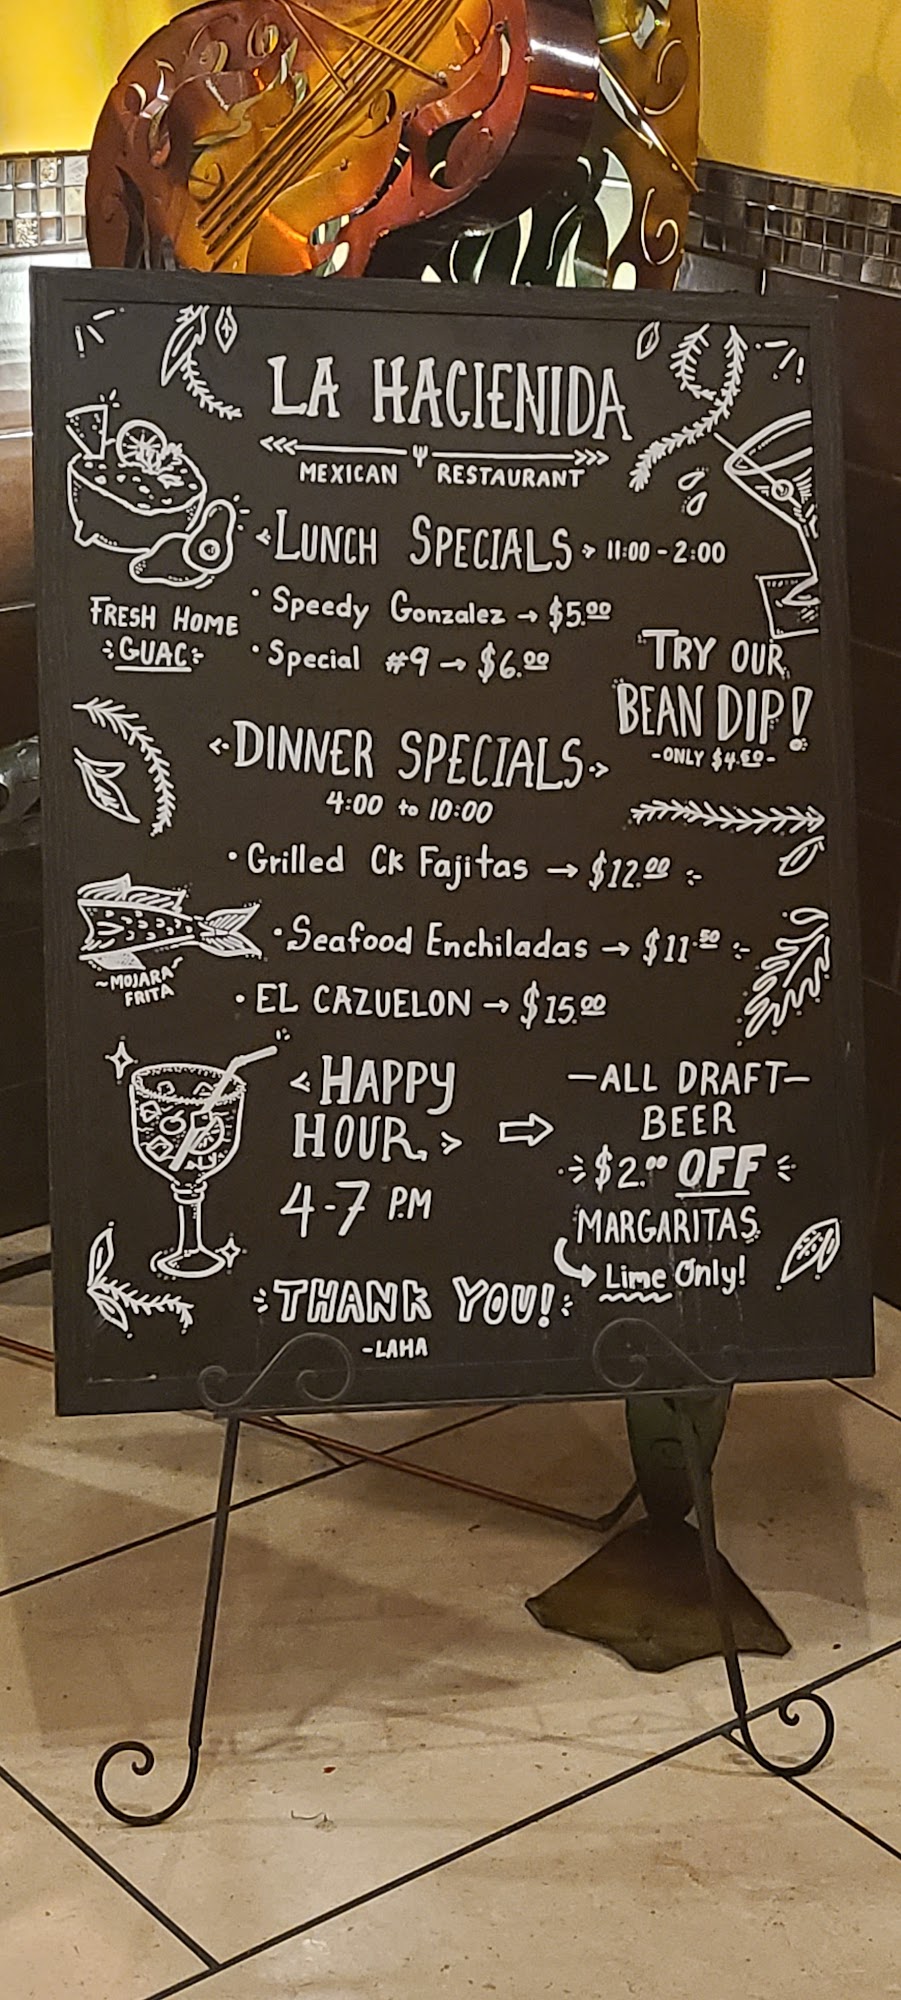 LA HACIENIDA
MEXICAN RESTAURANT
LUNCH SPECIALS 11:00 - 2:00
• Speedy Gonzalez → $5.00
• Special #9 → $6.00
FRESH HOME
GUAC
TRY OUR
BEAN DIP!
-ONLY $4.50-
DINNER SPECIALS
4:00 to 10:00
• Grilled Ck Fajitas → $12.00
• Seafood Enchiladas → $11.50
• EL CAZUELON → $15.00
~MOJARA~
FRITA
<HAPPY
HOUR>
4-7 P.M
—ALL DRAFT—
BEER
$2.00 OFF
MARGARITAS
Lime Only!
THANK YOU!
-LAHA